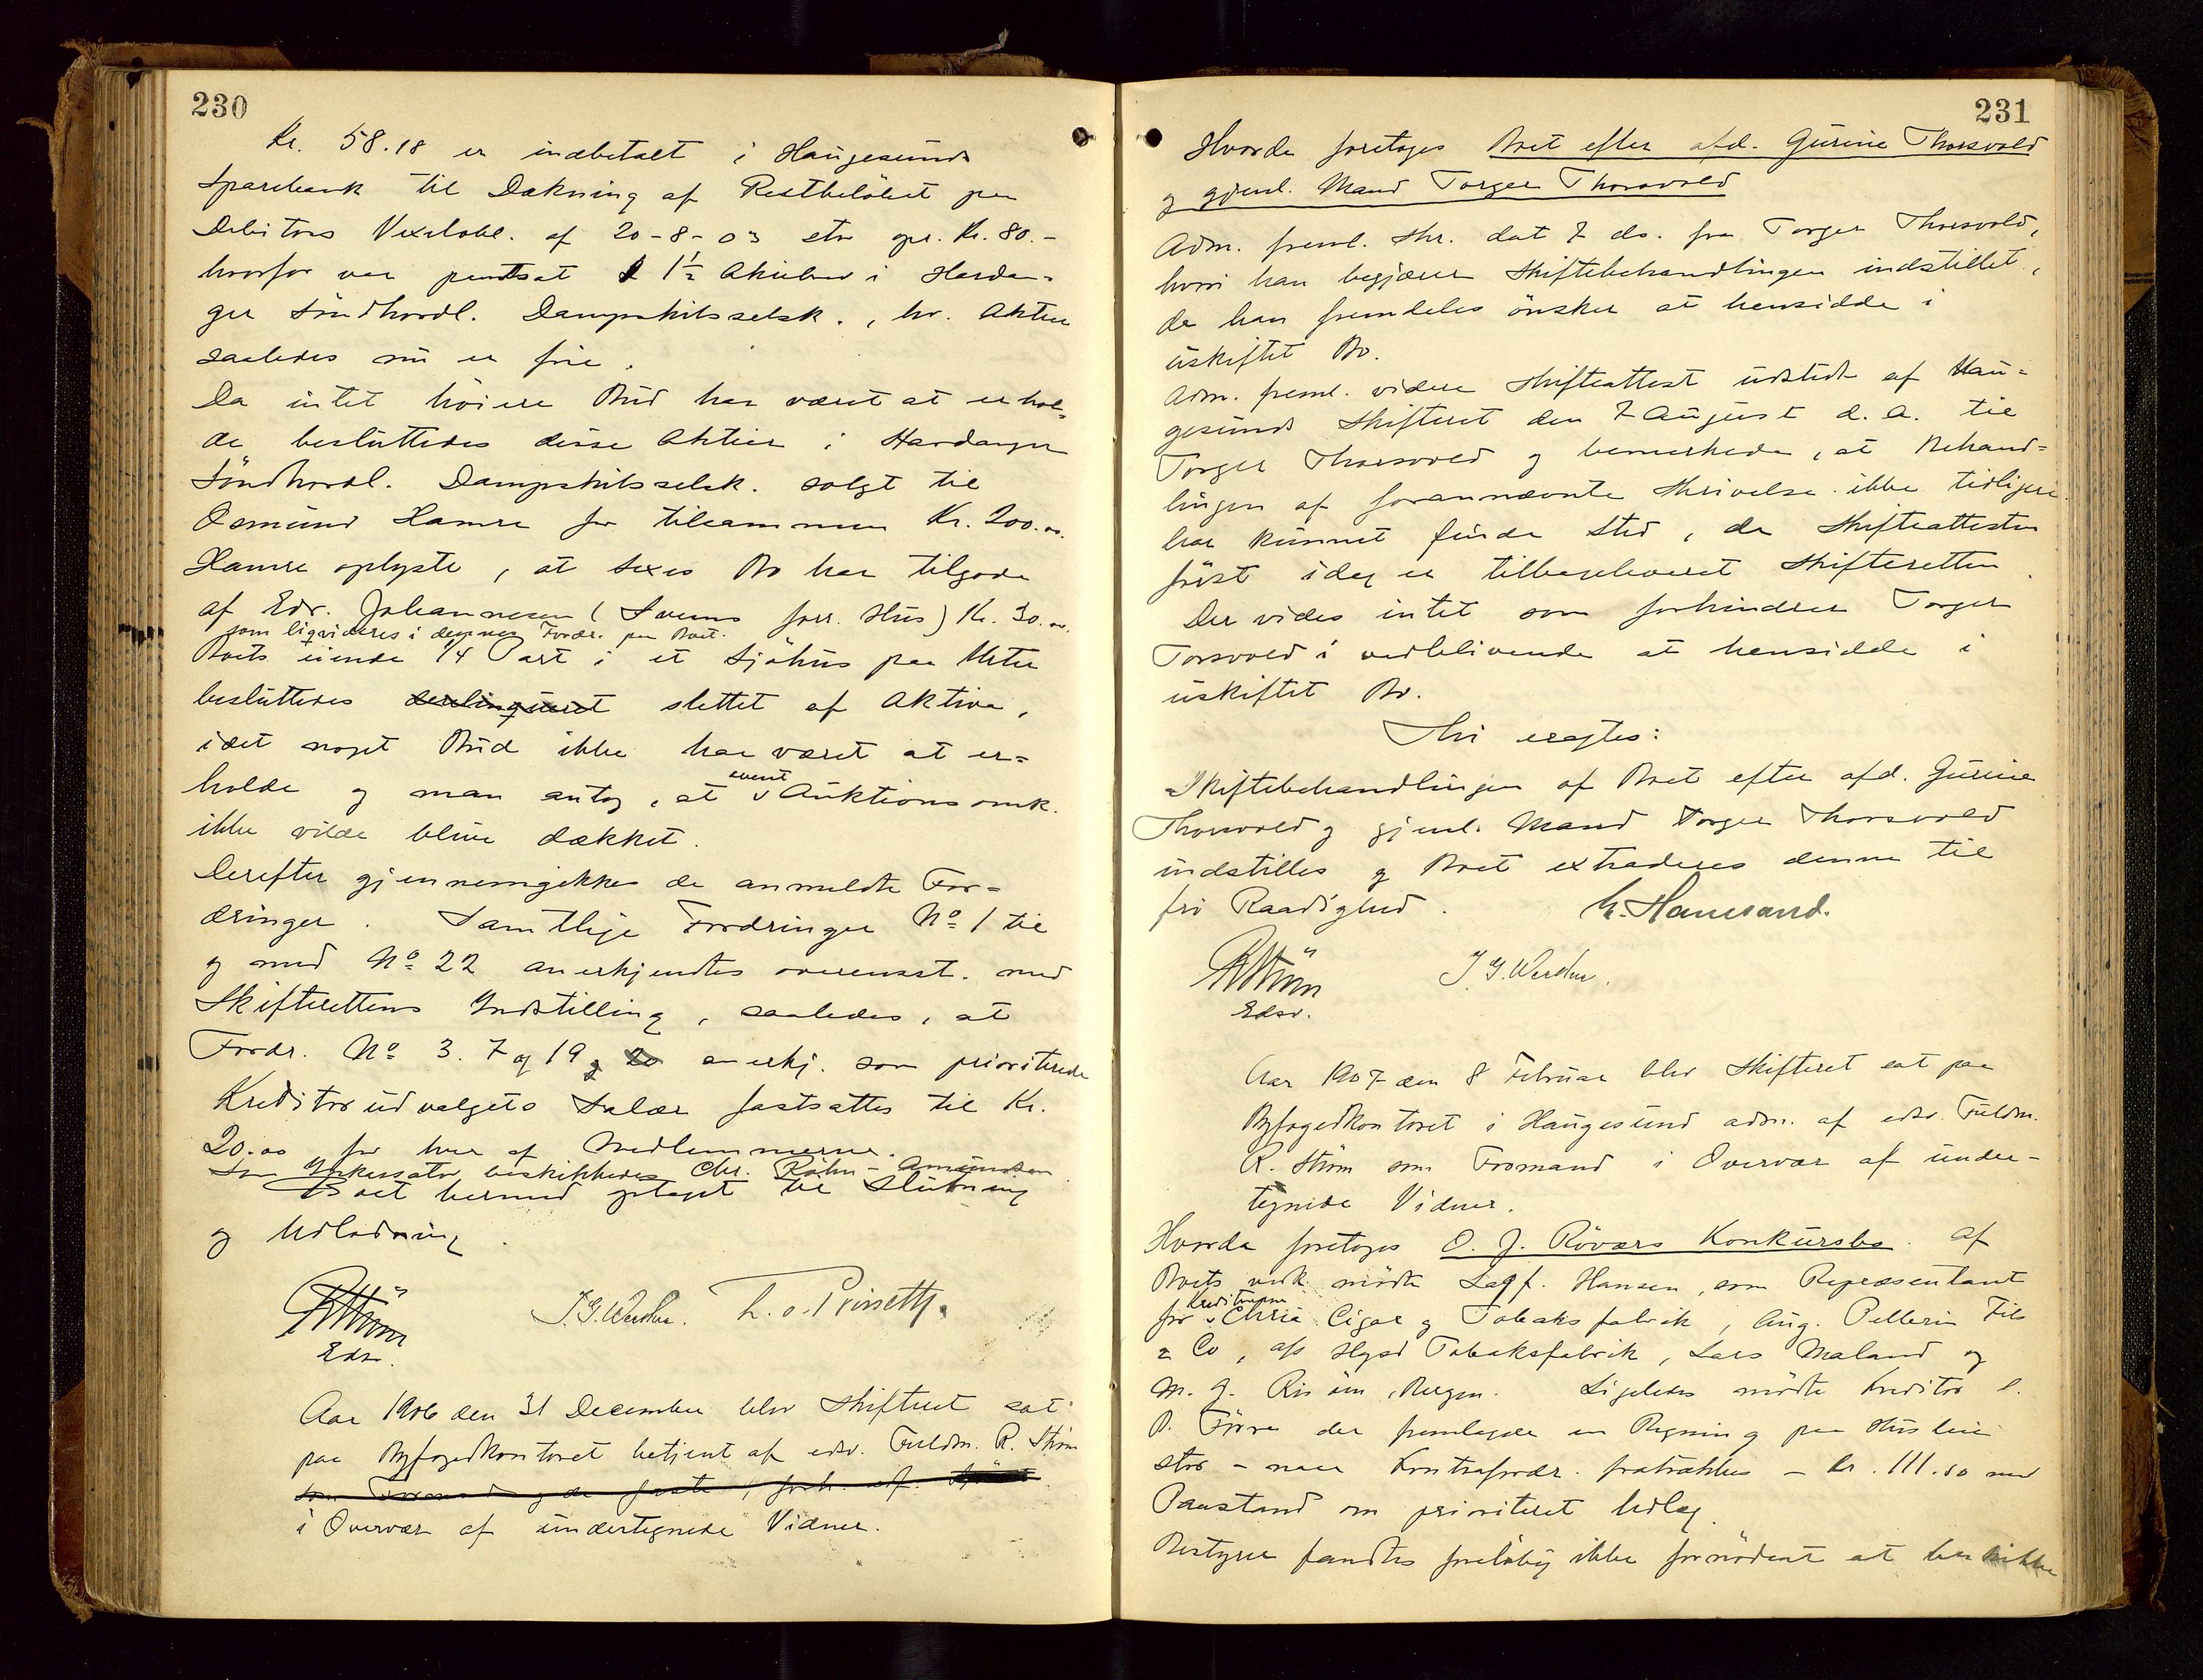 230
Kr. 58.18 er indbetalt i Haugesunds
Sparebank til Dækning af Restbeløbet paa
Debitors Vexelobl. af 20-8-03 stor opr. Kr. 80.-
hvorfor var pantsat 1½ Aktiebrev i Hardan-
ger Søndhordl. Dampskibsselsk., hv. Aktier
saaledes nu er frie.
Da intet høiere Bud har været at erhol-
de besluttedes disse Aktier i Hardanger
Søndhordl. Dampskibsselsk. solgt til
Osmund Hamre for tilsammen Kr. 200.00.
Hamre oplyste, at Sexes Bo har tilgode
af Edv. Johannesen (Svens forr. Hus) Kr. 30.00.
som liqvideres i dennes Fordr. paa Boet.
Boets eiende 1/4 Part i et Sjøhus paa
besluttedes slettet af Aktiva,
idet noget Bud ikke har været at er-
holde og man antog, at event Auktionsomk.
ikke vilde blive dækket.
Derefter gjennemgikkes de anmeldte For-
dringer. Samtlige Fordringer No 1 til
og med No 22 anerkjendtes overensst. med
Skifterettens Indstilling, saaledes, at
Fordr. No 3. 7 og 19 og 20 anerkj. som prioriterede
Kreditorudvalgets Salær fastsattes til Kr.
20.00 for hver af Medlemmerne.
Som Inkassator beskikkedes Chr. Røhn-Amundsen
Boet hermed optaget til Slutning
og Udlodning.
RStrøm
Edsv.
J. G. Werdnr. L. o. Prinsetty.
Aar 1906 den 31 December blev Skifteret sat
paa Byfogedkontoret betjent af edsv. Fuldm. R. Strøm
i Overvær af undertegnede Vidner.
231
Hvorda foretoges Boet efter afd. Gurine Thorsvold
og gjenl. Mand Torger Thorsvold
Adm. freml. Skr. dat 7 ds. fra Torger Thorsvold,
hvori han begjærer Skiftebehandlingen indstillet,
da han fremdeles ønsker at hensidde i
uskiftet Bo.
Adm. freml. videre Skifteattest udstedt af Hau-
gesunds Skifteret den 7 August d. A. til
Torger Thorsvold og bemerkede, at Behand-
lingen af forannævnte Skrivelse ikke tidligere
har kunnet finde Sted, da Skifteattesten
først idag er tilbageleveret Skifteretten.
Der vides intet som forhindrer Torger
Torsvold i vedblivende at hensidde i
uskiftet Bo.
Thi eragtes:
Skiftebehandlingen af Boet efter afd. Gurine
Thorsvold og gjenl. Mand Torger Thorsvold
indstilles og Boet extraderes denne til
fri Raadighed.
RStrøm
Edsv.
J. G. Werdnr.
Aar 1907 den 8 Februar blev Skifteret sat paa
Byfogedkontoret i Haugesund adm. af edsv. Fuldm.
R. Strøm som Fromand i Overvær af under-
tegnede Vidner.
Hvorda foretoges O. J. Røværs Konkursbo. Af
Boets vedk. mødte Sagf. Hansen, som Repræsentant
for Kreditorerne Chria Cigar og Tobaksfabrik, Aug. Pellerin Fils
& Co, A/s Hgsd Tobaksfabrik, Lars Maland og
M. G. Risøen, Bergen. Ligeledes mødte Kreditor
Førre der fremlagde en Regning paa Husleie
stor - naar Kontrafordr. fratrækkes - Kr. 111.50 med
Paastand om prioriteret Udlæg.
Bestyrer fandtes foreløbig ikke fornødent at beskikke